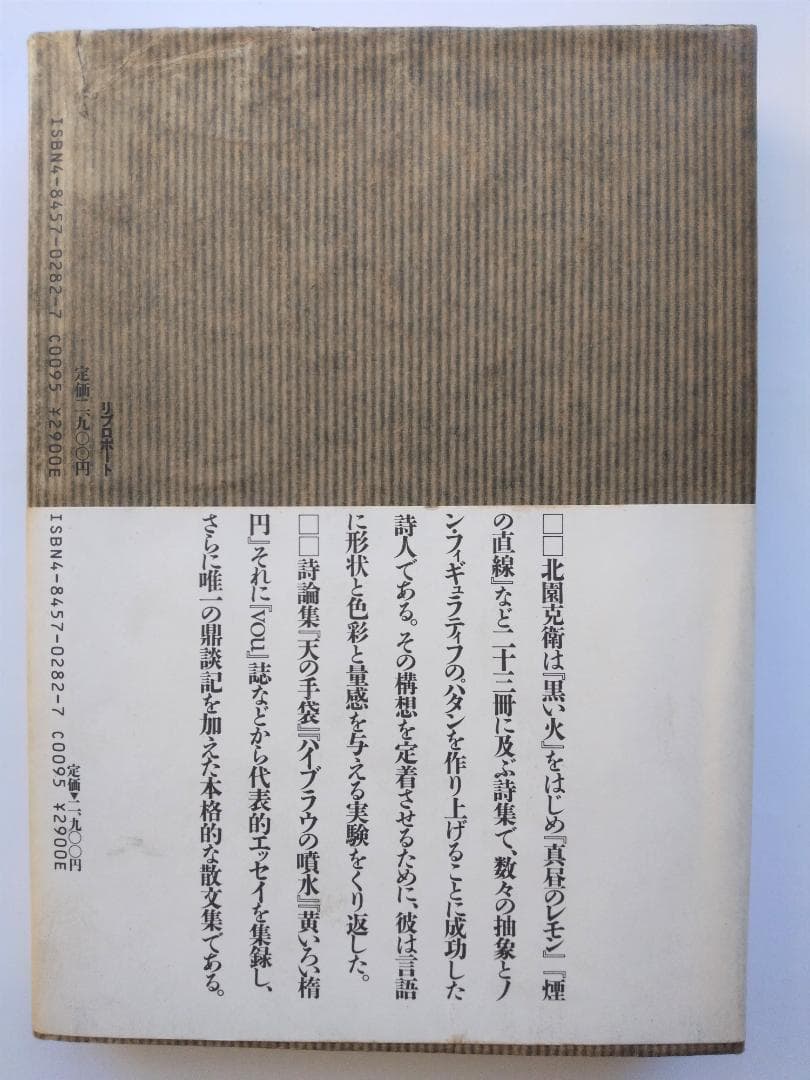 ISBN4-8457-0282-7 C0095 ¥2900E
定価二、九〇〇円
リブロポート
□□北園克衛は『黒い火』をはじめ『真昼のレモン』『煙
の直線』など二十三冊に及ぶ詩集で、数々の抽象とノ
ン・フィギュラティフのパタンを作り上げることに成功した
詩人である。その構想を定着させるために、彼は言語
に形状と色彩と量感を与える実験をくり返した。
□□詩論集『天の手袋』『ハイブラウの噴水』『黄いろい楕
円』それに『VOU』誌などから代表的エッセイを集録し、
さらに唯一の鼎談記を加えた本格的な散文集である。
定価▼二、九〇〇円
ISBN4-8457-0282-7 C0095 ¥2900E